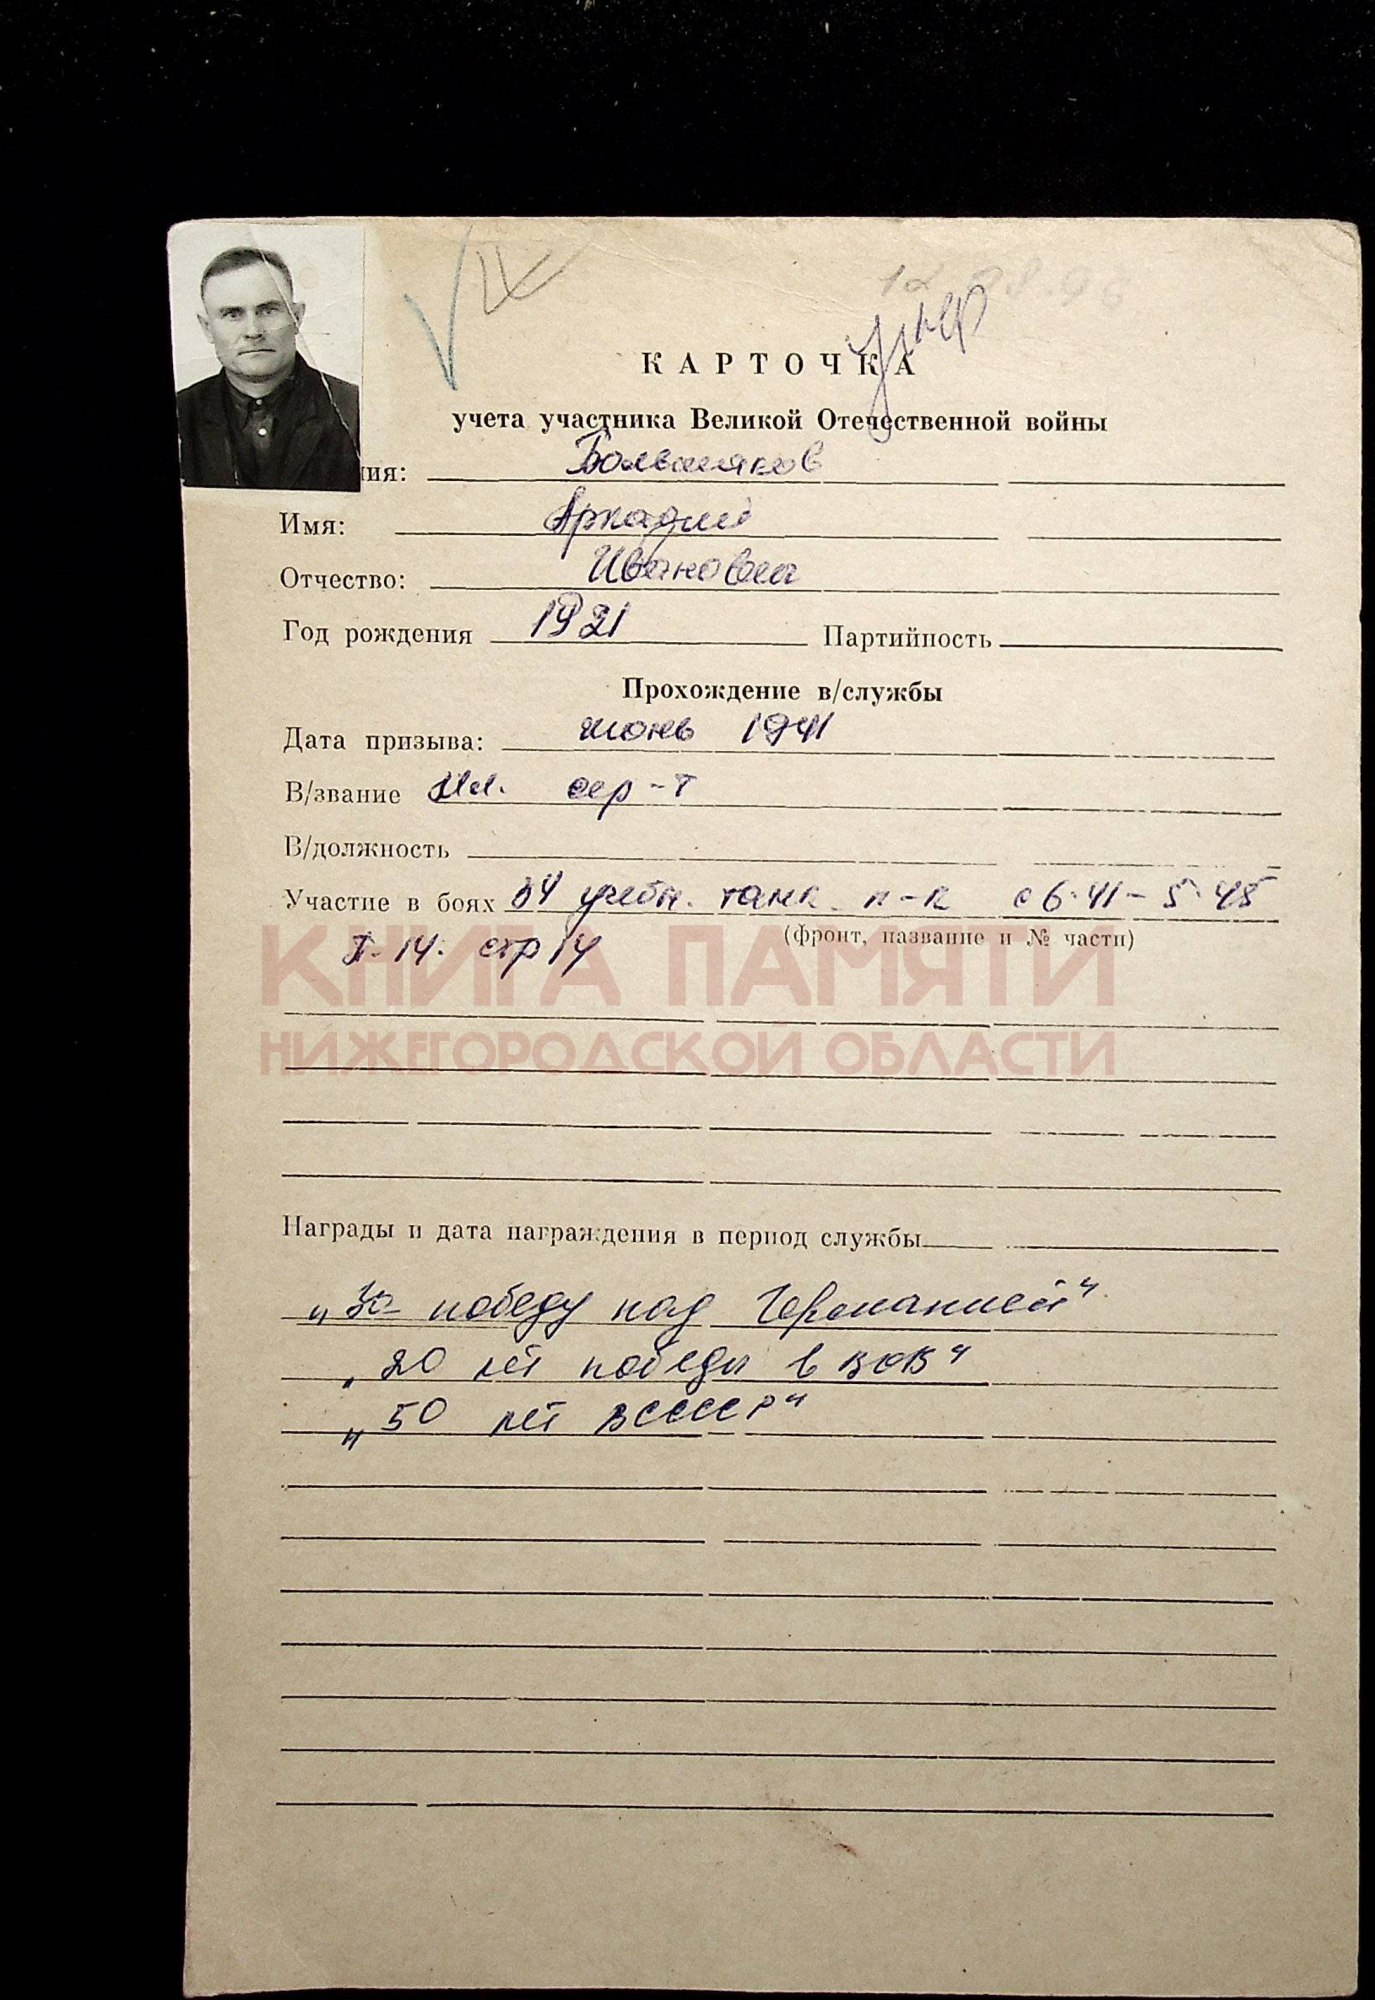 12 08.96
умер
КАРТОЧКА
учета участника Великой Отечественной войны
ия: Большаков
Имя: Аркадий
Отчество: Иванович
Год рождения 1921 Партийность
Прохождение в/службы
Дата призыва: июнь 1941
В/звание Мл. сер-т
В/должность
Участие в боях 34 учебн. танк. п-к с 6.41 - 5.45
(фронт, название и № части)
Т-14. стр 14
КНИГА ПАМЯТИ
НИЖЕГОРОДСКОЙ ОБЛАСТИ
Награды и дата награждения в период службы
„За победу над Германией“
„20 лет победы в ВОВ“
„50 лет ВССССР“